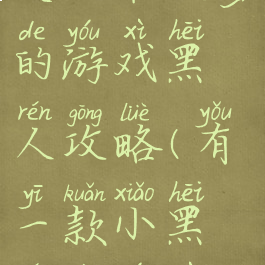 de yóu xì hēi
的游戏黑
rén gōng lüè yǒu
人攻略(有
yī kuǎn xiǎo hēi
一款小黑